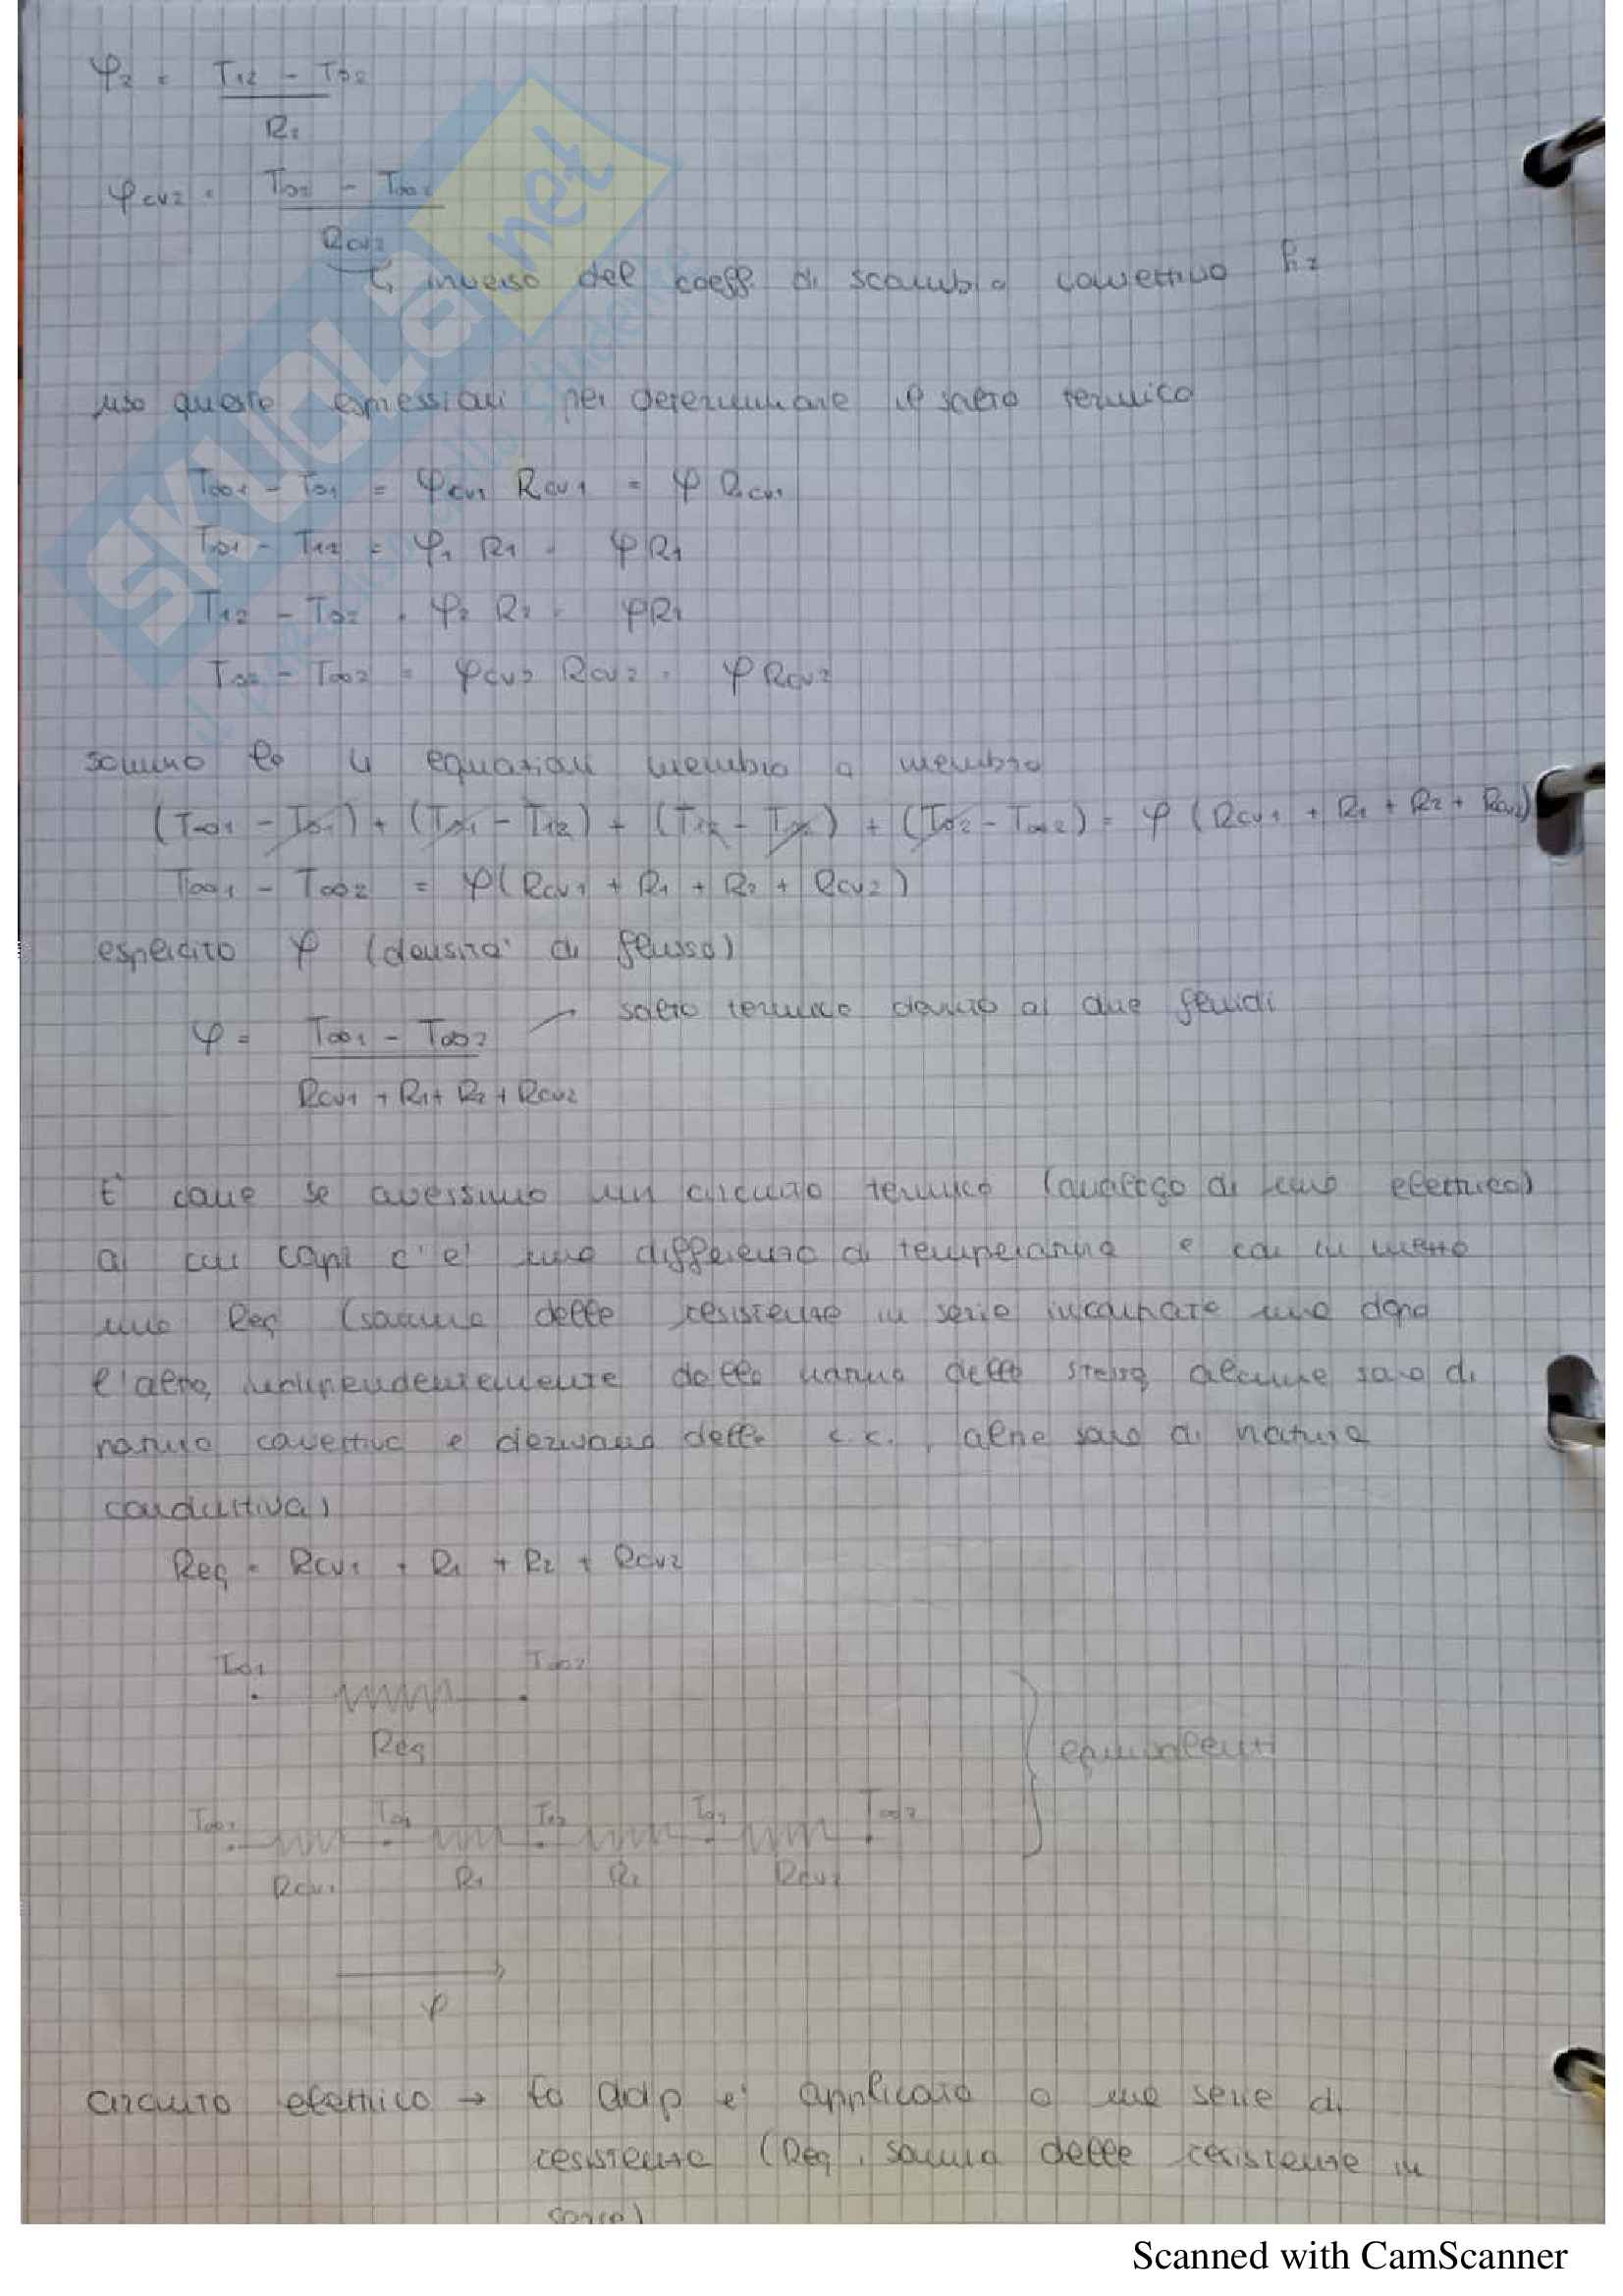 φ2 = T12 - T02
R2
φcv2 = T02 - T∞2
Rcv2
↳ inverso del coeff. di scambio convettivo h2
uso queste espressioni per determinare il salto termico
T∞1 - T01 = φcv1 Rcv1 = φ Rcv1
T01 - T12 = φ1 R1 = φR1
T12 - T02 = φ2 R2 = φR2
T02 - T∞2 = φcv2 Rcv2 = φ Rcv2
sommo le 4 equazioni membro a membro
(T∞1 - T01) + (T01 - T12) + (T12 - T02) + (T02 - T∞2) = φ (Rcv1 + R1 + R2 + Rcv2)
T∞1 - T∞2 = φ(Rcv1 + R1 + R2 + Rcv2)
esplicito φ (densità di flusso)
φ = T∞1 - T∞2 → salto termico dovuto ai due fluidi
Rcv1 + R1 + R2 + Rcv2
È come se avessimo un circuito termico (analogo di uno elettrico)
ai cui capi c'è una differenza di temperatura e con in mezzo
una Req (somma delle resistenze in serie incontrate una dopo
l'altra, indipendentemente dalla natura della stessa, alcune sono di
natura convettiva e derivano dalle c.c., altre sono di natura
conduttiva)
Req = Rcv1 + R1 + R2 + Rcv2
T∞1 T∞2
Req
equivalenti
T∞1 T01 T12 T02 T∞2
Rcv1 R1 R2 Rcv2
φ
circuito elettrico → la ddp è applicata a una serie di
resistenze (Req, somma delle resistenze in
serie)
SKUOLA.net
Scanned with CamScanner